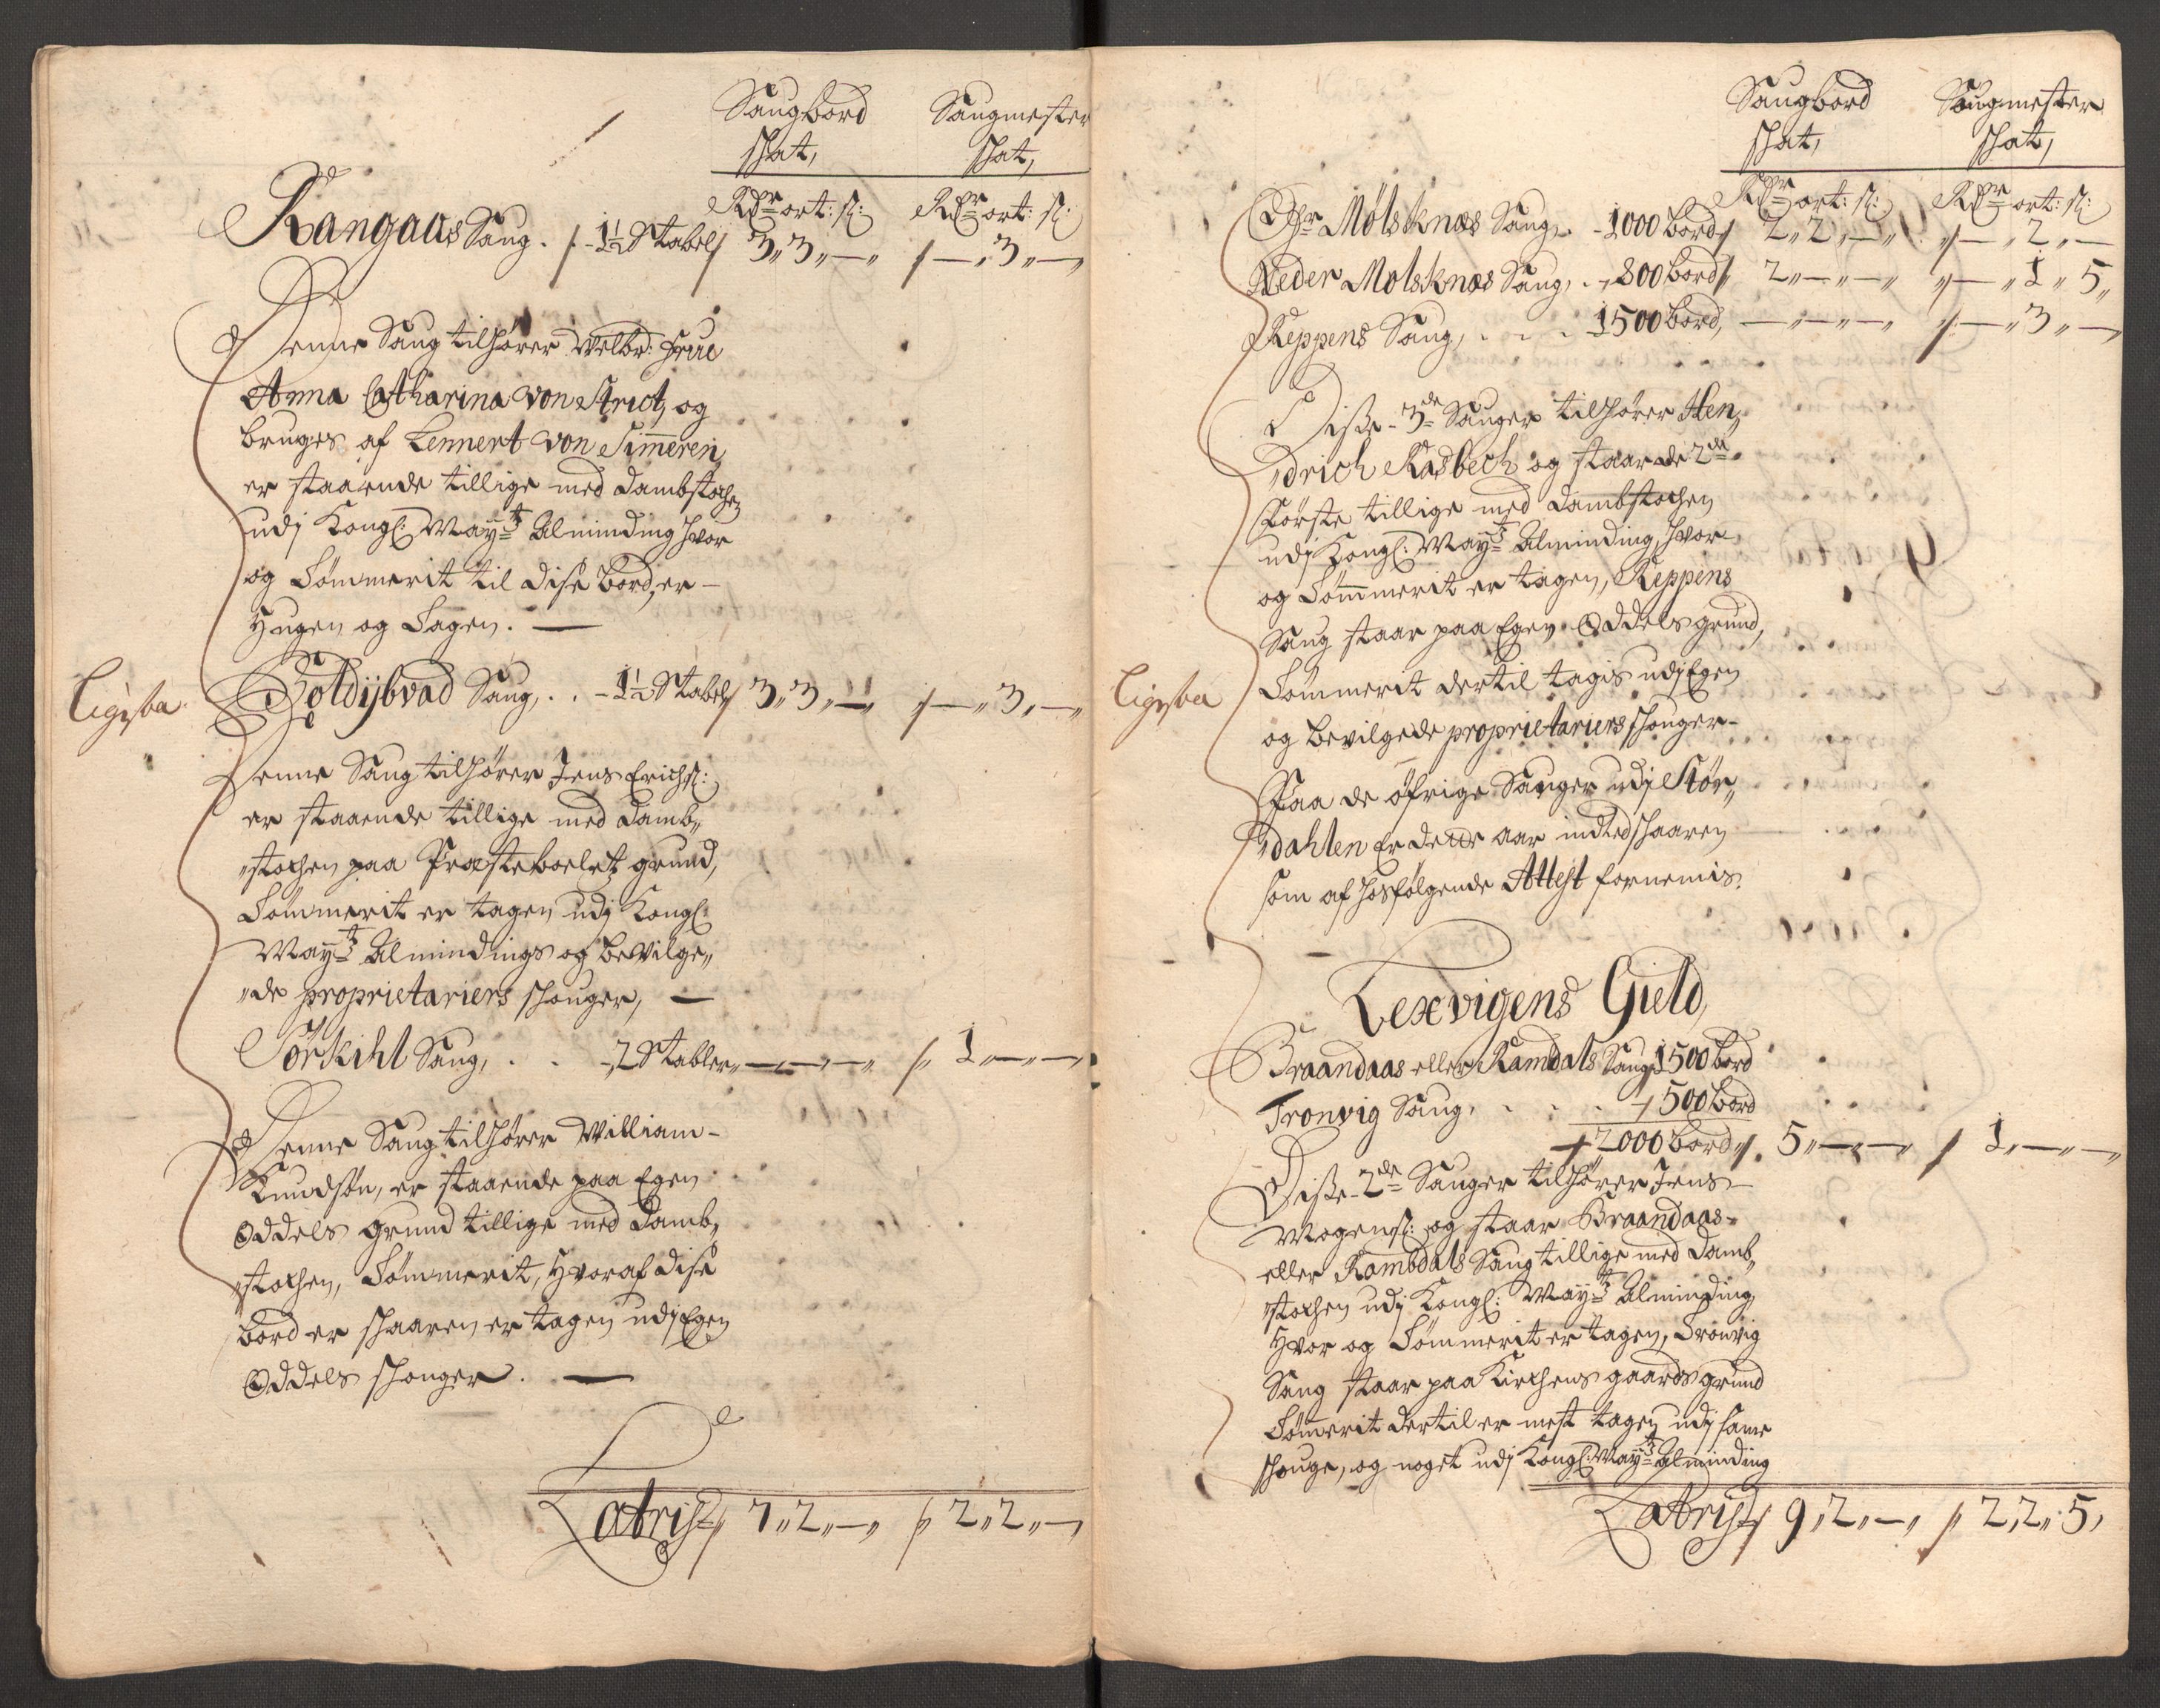 Saugbord Saugmester
schat, schat,
Rdr ort: s: Rdr ort: s:
Kangaas Saug. - 1½ Stabel 3,, 3,, — ,, — ,, 3,, —
Denne Saug tilhører Welbr: Frue
Anna Catharina von Strict, og
bruges af Lennert von Simmeren,
er staaende tillige med dambstochen
udj Kongl: Mayts Alminding hvor
og Tømmerit til disse bord, er -
Hugen og Tagen. —
Ligesaa
Boldijbvad Saug, . . - 1½ Stabel 3,, 3,, — ,, — ,, 3,, —
Denne Saug tilhører Jens Erichs:
er staaende tillige med damb,,
,,stochen paa Præsteboelets grund,
Tømmerit er tagen udj Kongl:
Mayts Almindings og bevilge,,
,,de proprietariers schouger, —
Törkihl Saug, . . - 2 Stabler ,, — ,, — ,, — 1,, — ,, —
Denne Saug tilhører William -
Knudsøn, er staaende paa Egen
Oddels grund tillige med damb,,
,,stochen, Tømmerit, Hvoraf disse
bord er schaaren er tagen udj Egen
Oddels schouger. —
Latris 7,, 2,, — ,, 2,, 2,, —
Saugbord Saugmester
schat, schat,
Rdr ort: s: Rdr ort: s:
Ofr Mølsknæs Saug, . - 1000 bord 2,, 2,, — ,, — ,, 2,, —
Neder Molsknæs Saug, . 800 bord 2,, — ,, — ,, — ,, 1,, 5,,
Reppens Saug, . . . 1500 bord, — ,, — ,, — ,, — ,, 3,, —
Disse - 3de Sauger tilhører Hen,,
,,drich Kasbech og staar de 2de
Förste tillige med dambstochen
udj Kongl: Mayts Alminding, hvor
og Tømmerit er tagen, Reppens
Saug staar paa Egen Oddels grund,
Ligesaa
Tømmerit dertil tagis udj Egen
og bevilgede proprietariers schouger -
Paa de øfrige Sauger udj Stør,,
,,dahlen Er dette aar indted schaaren
som af hosfølgende Attest fornemis.
Lexvigens Gield,
Braandaas eller Ramdals Saug 1500 bord
Tronvig Saug, . . . . 500 bord
2000 bord 5,, — ,, — 1,, — ,, —
Disse - 2de Sauger tilhører Jens -
Mogens: og staar Braandaas -
eller Rambdals Saug tillige med damb,,
,,stochen udj Kongl: Mayts Alminding,
Hvor og Tømmerit er tagen, Tronvig
Saug staar paa Kirchens gaards grund
Tømerit dertil er mest tagen udj samme
schouge, og noget udj Kongl: Mayts Alminding
Latris 9,, 2,, — ,, 2,, 2,, 5,,